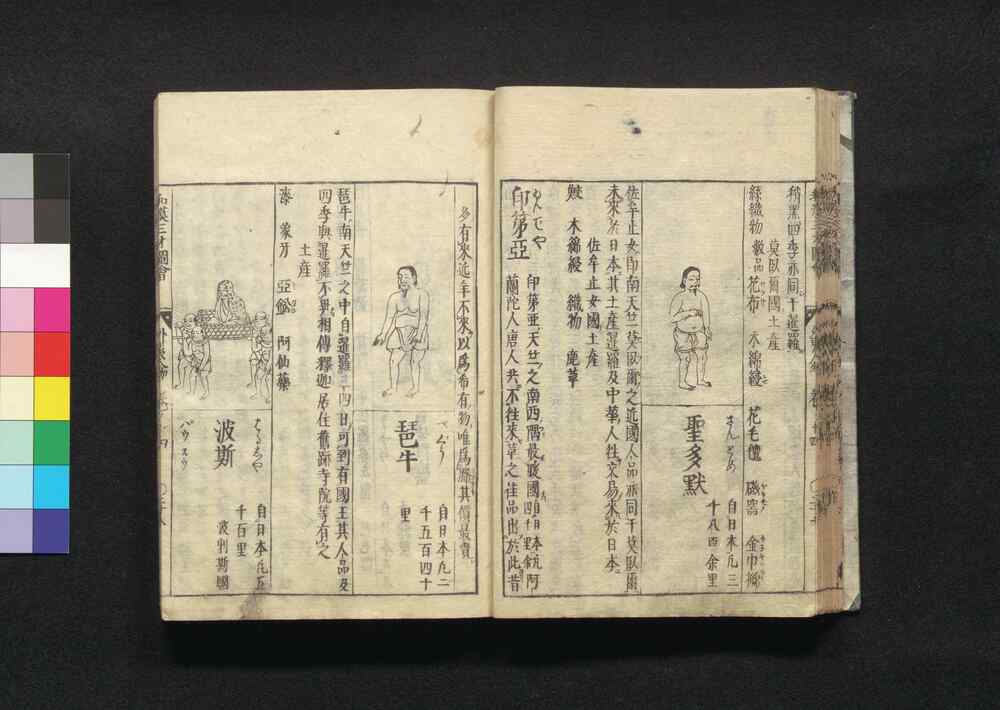 利黒四季亦同于暹羅
莫臥爾國土産
絲織物
花布
木綿綫
花毛氊
磁器
さんとめ
聖多默
自日本凡三
千八百余里
佐牟止女印南天竺莫臥爾之近國人品亦同于莫臥爾
未來於日本其土産暹羅及中華人往交易來於日本
佐牟止女國土産
鮫
木綿綫
織物
鹿革
いんでや
印第亞
印第亜天竺之南西隅最暖國自日本
蘭陀人唐人共不往來草之佳品出於此昔
多有來近年不來以爲希有物唯爲
其價最貴
琶牛
自日本凡二
千五百四十
里
琶牛南天竺之中自暹羅三四日可到有國王其人品及
四季與暹羅不異相傳釋迦居住舊跡寺院等有之
土産
漆
象牙
阿仙藥
はるしや
波斯
自日本凡五
千百里
波利斯國
和漢三才圖會